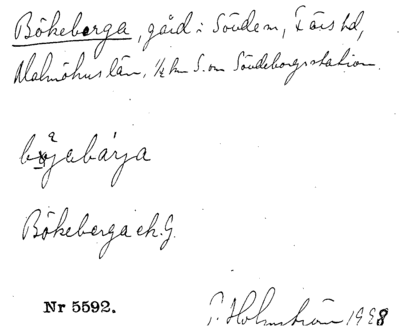 Bökeberga, gård i Sövdem, Färs hd,
Malmöhus län, ½ km S. om Sövdeborgs station.
Bökeberga ek. G.
Nr 5592. P. Holmström